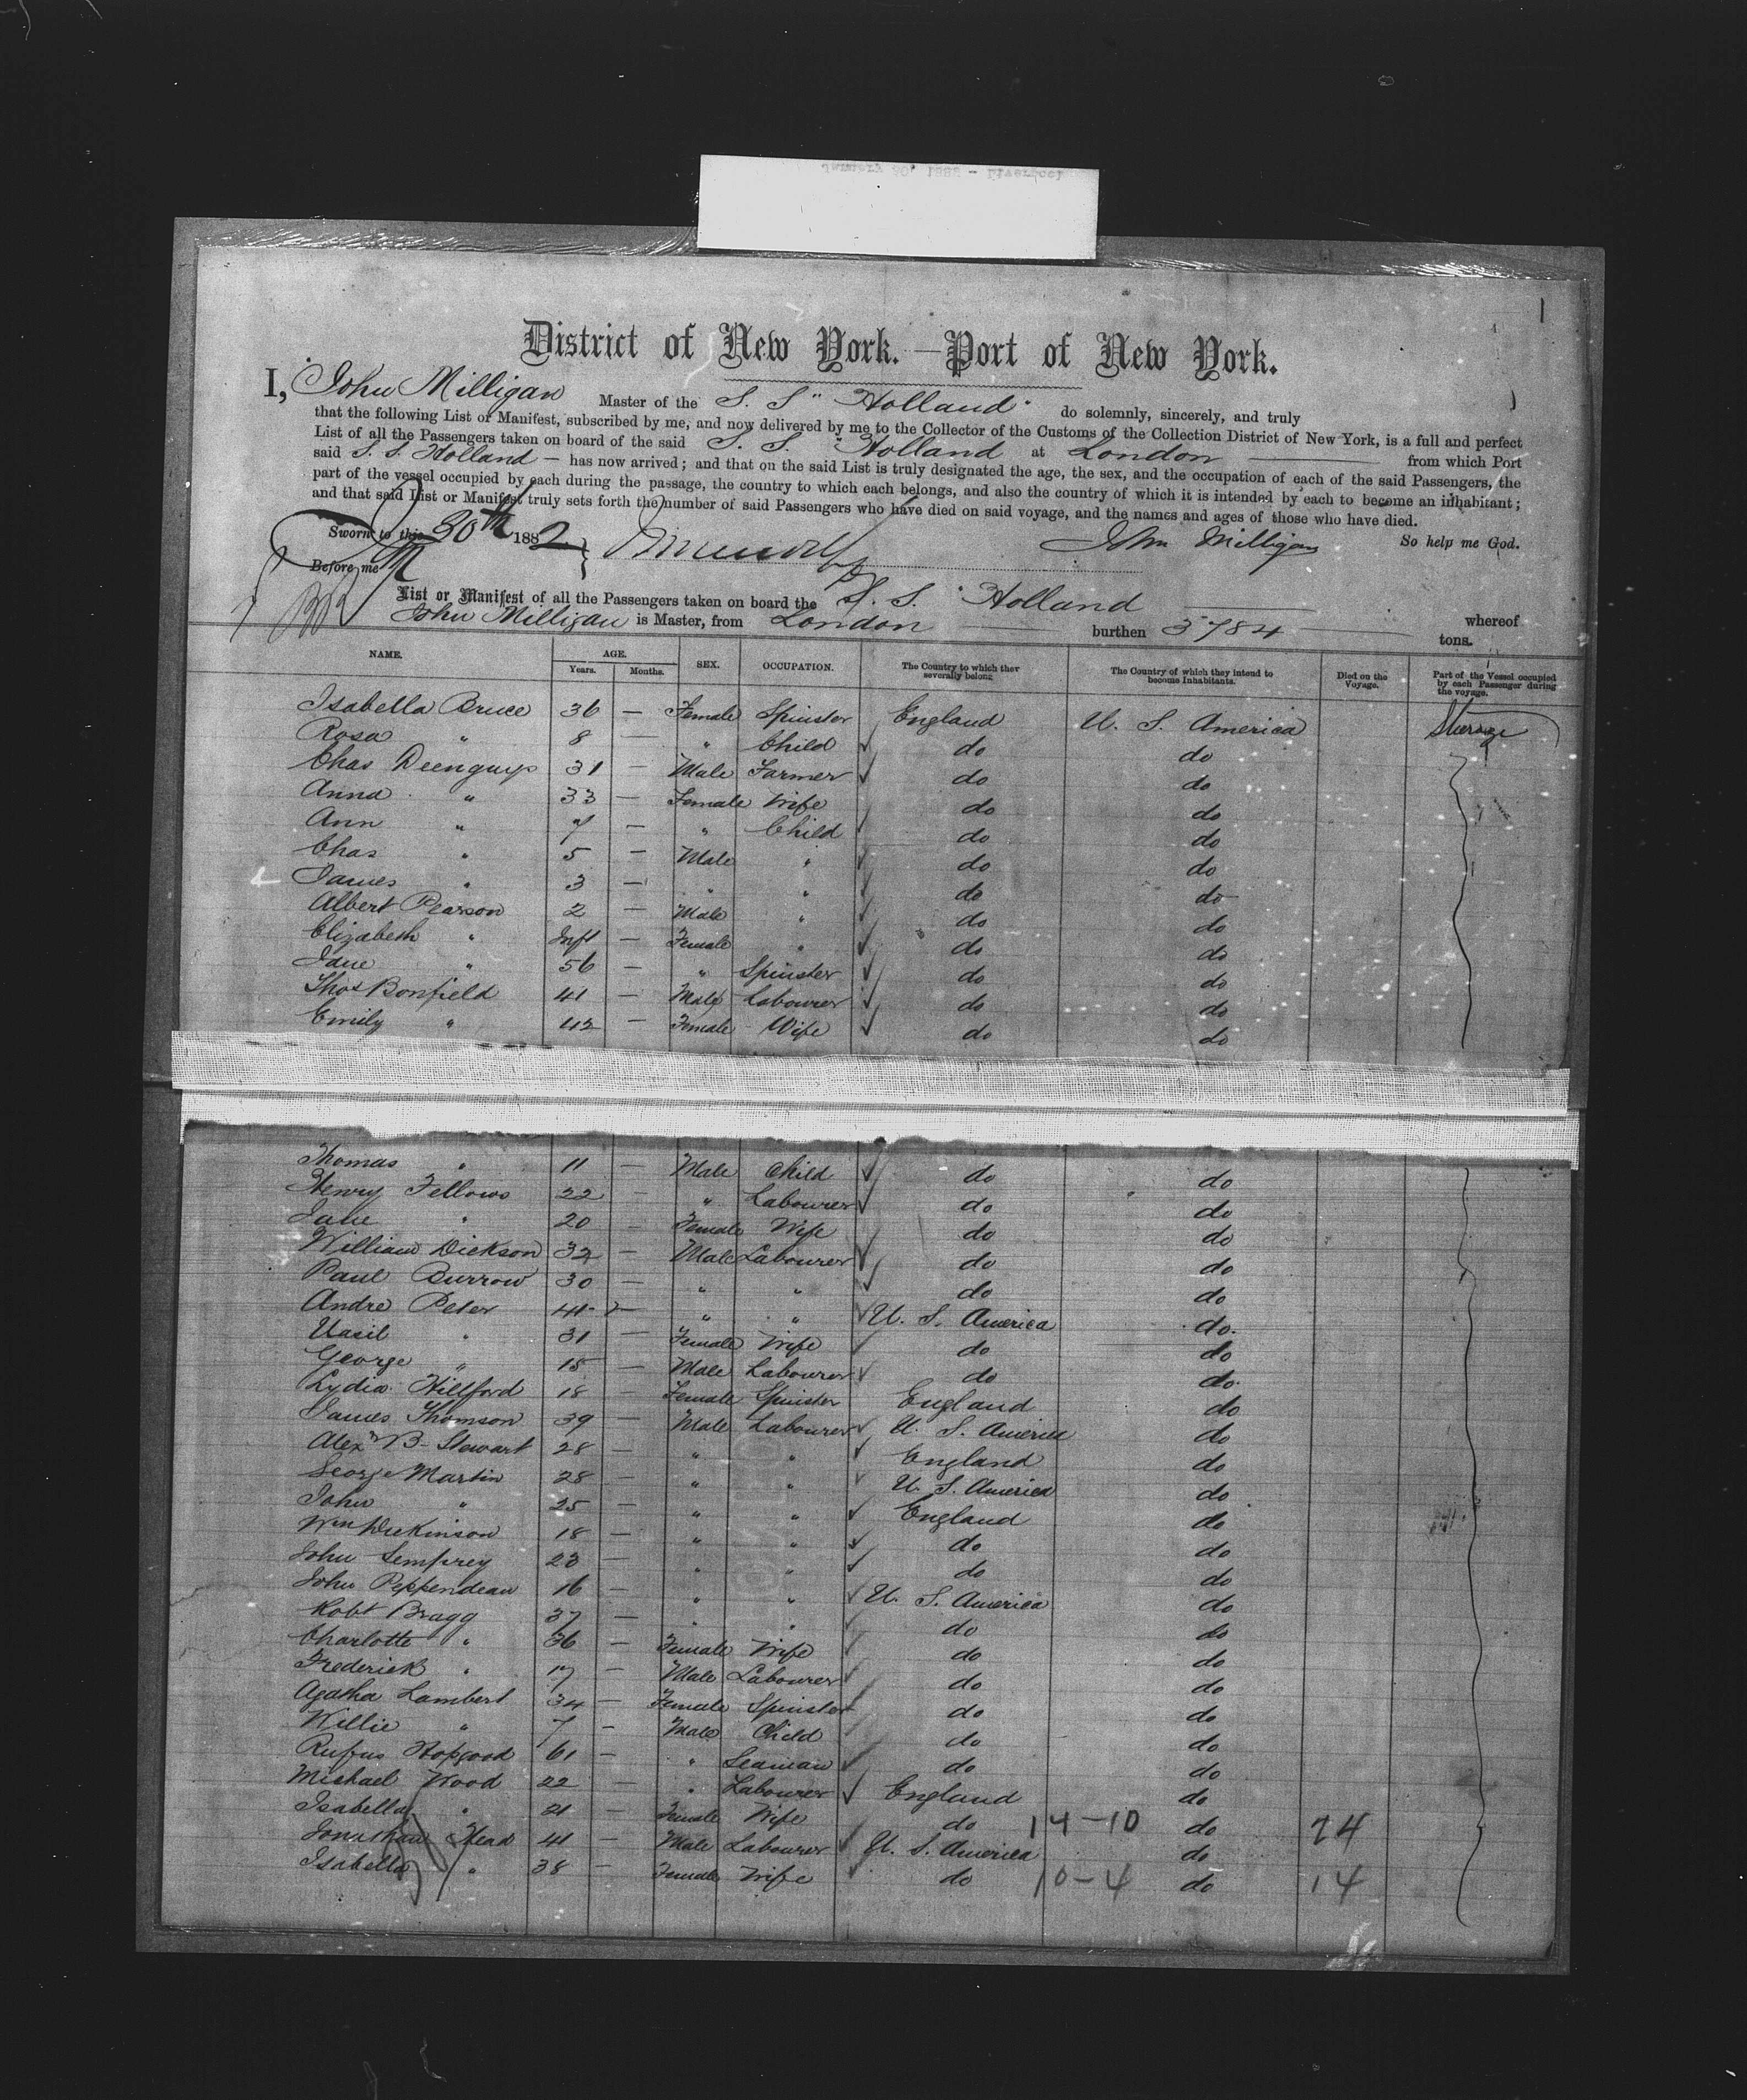 District of New York.—Port of New York.
I, John Milligan Master of the S. S "Holland" do solemnly, sincerely, and truly
that the following List or Manifest, subscribed by me, and now delivered by me to the Collector of the Customs of the Collection District of New York, is a full and perfect
List of all the Passengers taken on board of the said S. S. "Holland at London from which Port
said S. S. Holland — has now arrived; and that on the said List is truly designated the age, the sex, and the occupation of each of the said Passengers, the
part of the vessel occupied by each during the passage, the country to which each belongs, and also the country of which it is intended by each to become an inhabitant;
and that said List or Manifest truly sets forth the number of said Passengers who have died on said voyage, and the names and ages of those who have died.
Sworn to this 30th 1882 John Milligan So help me God.
Before me
List or Manifest of all the Passengers taken on board the S. S. "Holland whereof
John Milligan is Master, from London burthen 3784 tons.
NAME. AGE. Years. Months. SEX. OCCUPATION. The Country to which they severally belong The Country of which they intend to become Inhabitants. Died on the Voyage. Part of the Vessel occupied by each Passenger during the voyage.
Isabella Bruce 36 — Female Spinster England U. S. America Steerage
Rosa " 8 — " Child do do
Chas 31 — Male Farmer do do
Anna " 33 — Female Wife do do
Ann " 7 — " Child do do
Chas " 5 — Male " do do
James " 3 — " " do do
Albert Pearson 2 — Male " do do
Elizabeth " Inft — Female " do do
Jane " 56 — " Spinster do do
Thos Bonfield 41 — Male Labourer do do
Emily " 42 — Female Wife do do
Thomas " 11 — Male Child do do
Henry Fellows 22 — " Labourer do do
Jane " 20 — Female Wife do do
William Dickson 32 — Male Labourer do do
Paul Burrow 30 — " " do do
Andre Peter 41 — " " U. S. America do.
" 31 — Female Wife do do
George " 15 — Male Labourer do do.
Lydia Hillford 18 — Female Spinster England do
James Thomson 39 — Male Labourer U. S. America do
Alexr B. Stewart 28 — " " England do
George Martin 28 — " " U. S. America do
John " 25 — " " England do
Wm Dickinson 18 — " " do do
John 23 — " " do do
John Peppendean 16 — " " U. S. America do
Robt Bragg 37 — " " do do
Charlotte " 36 — Female Wife do do
Frederick " 17 — Male Labourer do do
Agatha Lambert 34 — Female Spinster do do
Willie " 7 — Male Child do do
Rufus Hopgood 61 — " Seaman do do
Michael Wood 22 — " Labourer England do
Isabella " 21 — Female Wife do 14-10 do 24
Jonathan Head 41 — Male Labourer U. S. America do
Isabella " 38 — Female Wife do 10-4 do 14